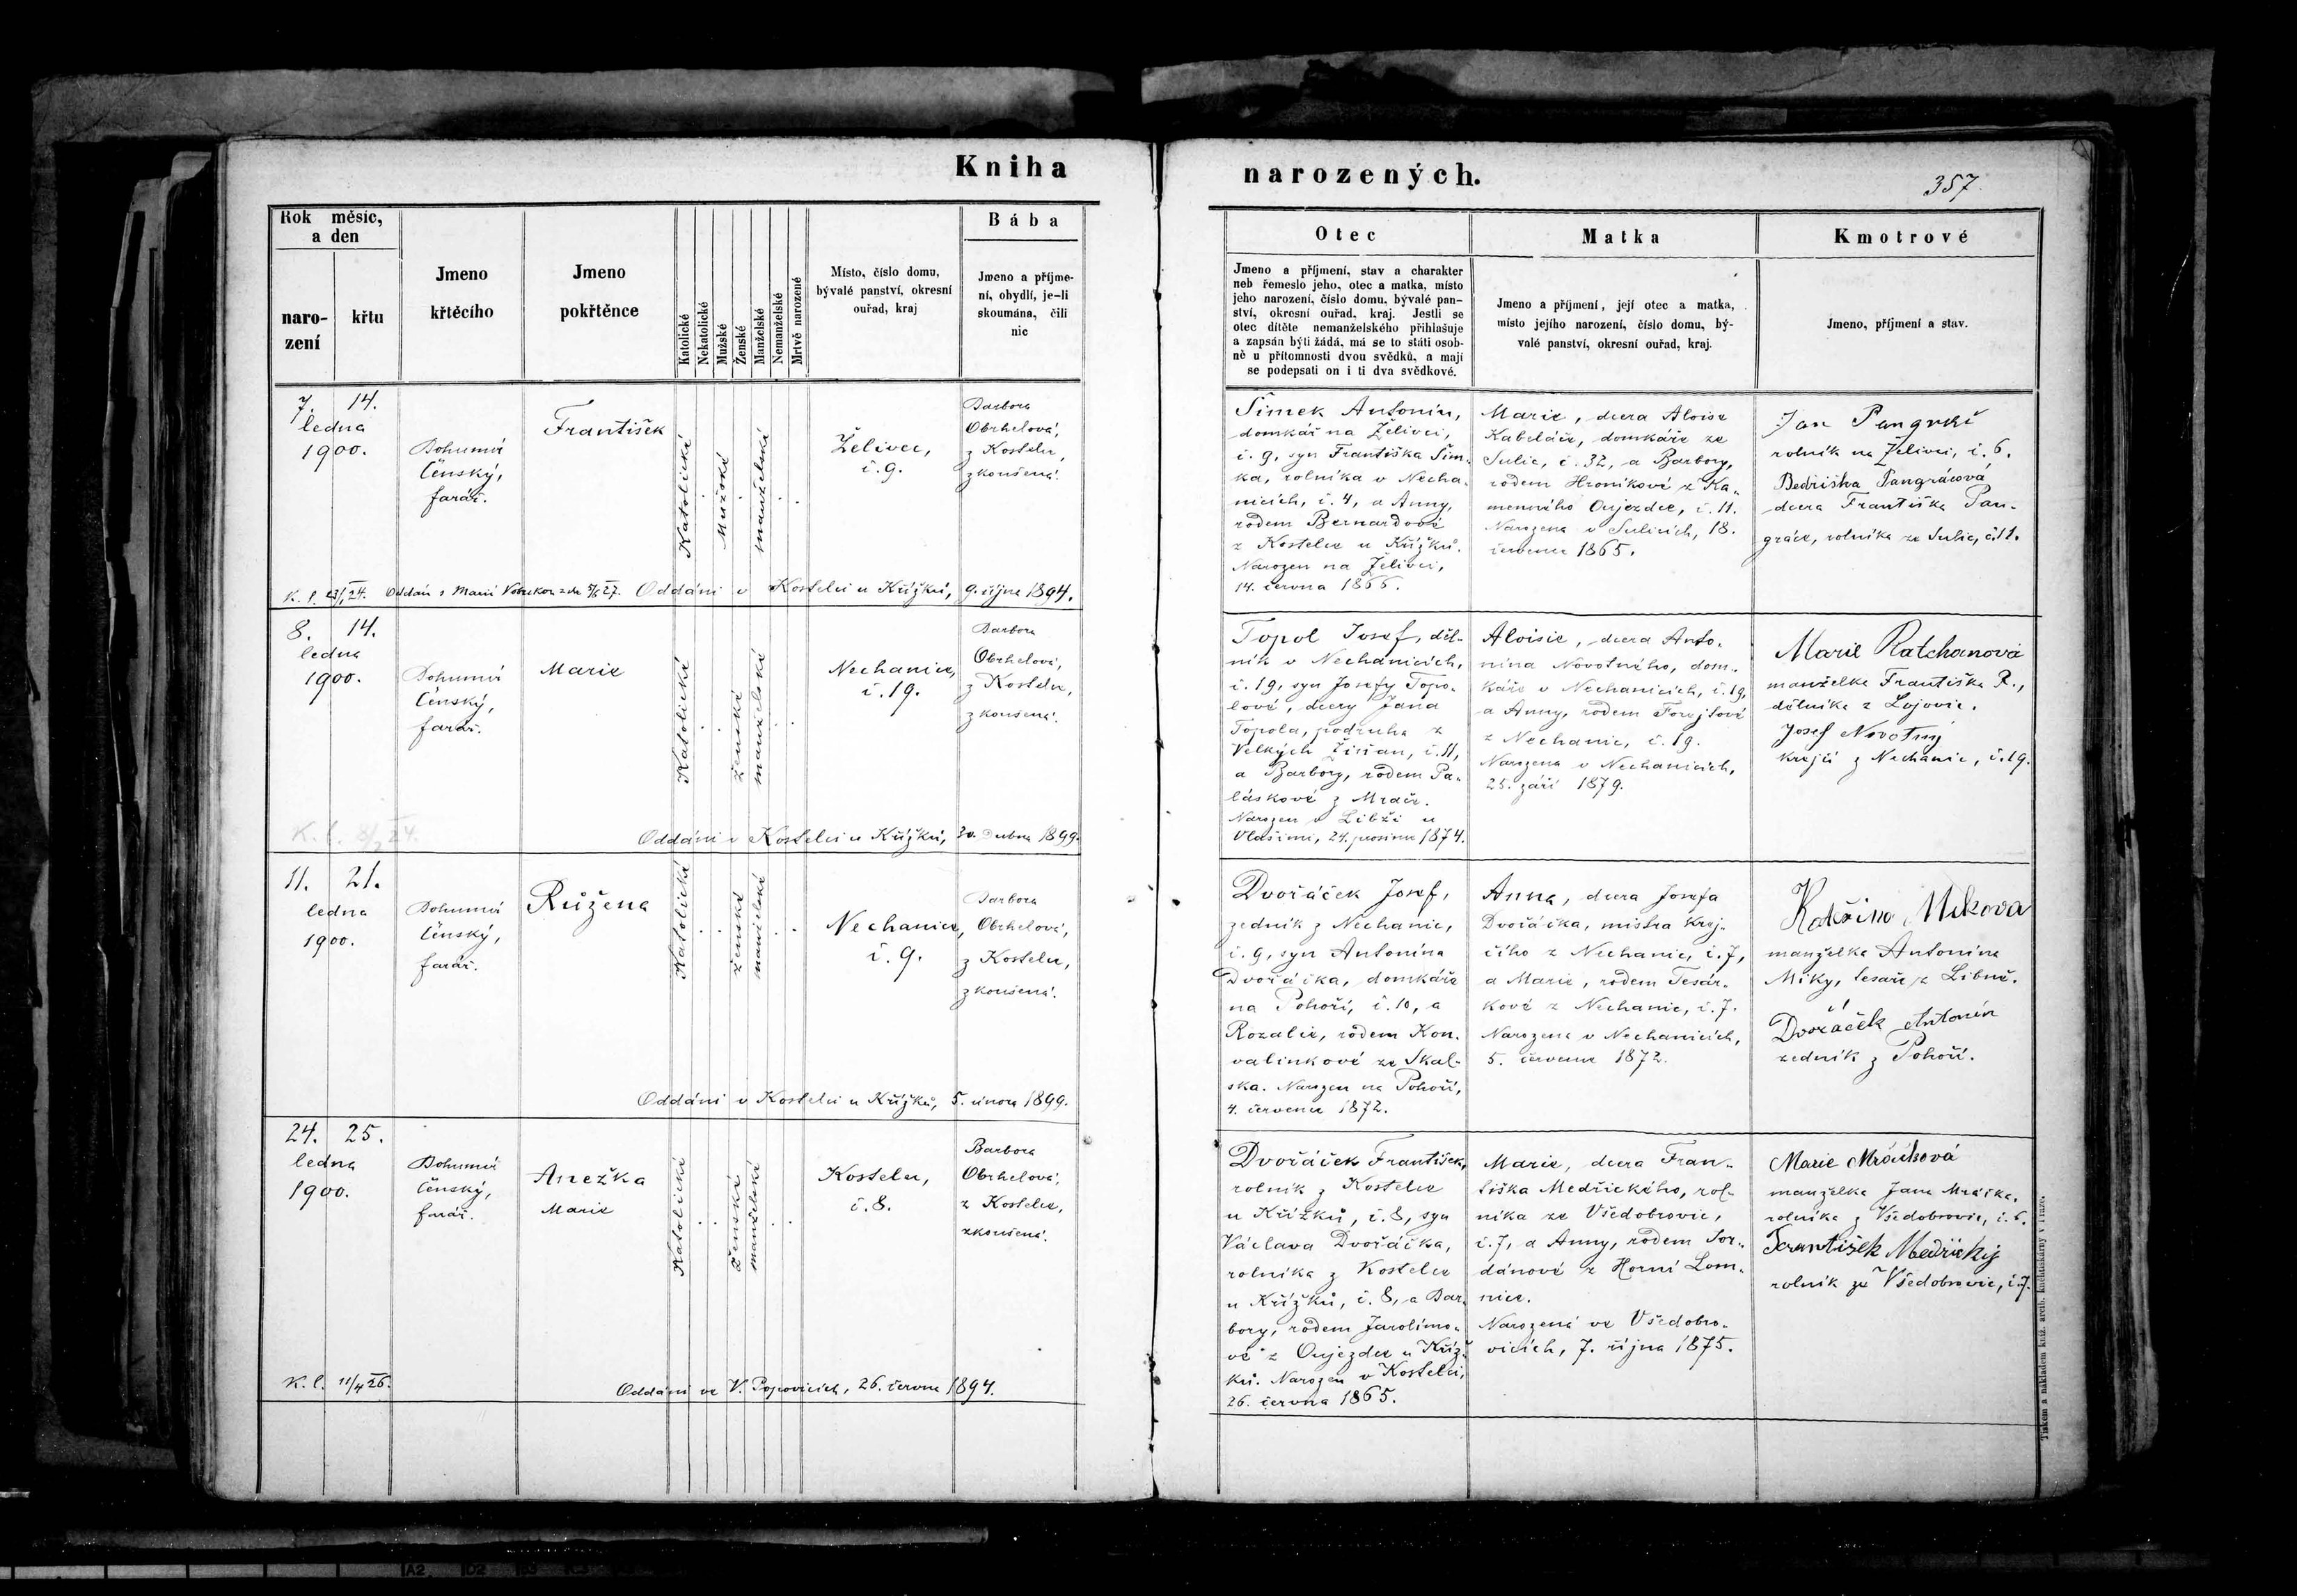 Kniha
narozených.
357.
Rok měsíc,
a den
naro-
zení
křtu
Jmeno
křtěcího
Jmeno
pokřtěnce
Katolické
Nekatolické
Mužské
Ženské
Manželské
Nemanželské
Mrtvě narozené
Místo, číslo domu,
bývalé panství, okresní
ouřad, kraj
Bába
Jmeno a příjme-
ní, obydlí, je-li
skoumána, čili
nic
Otec
Jmeno a příjmení, stav a charakter
neb řemeslo jeho, otec a matka, místo
jeho narození, číslo domu, bývalé pan-
ství, okresní ouřad, kraj. Jestli se
otec dítěte nemanželského přihlašuje
a zapsán býti žádá, má se to státi osob-
ně u přítomnosti dvou svědků, a mají
se podepsati on i ti dva svědkové.
Matka
Jmeno a příjmení, její otec a matka,
místo jejího narození, číslo domu, bý-
valé panství, okresní ouřad, kraj.
Kmotrové
Jmeno, příjmení a stav.
7. 14.
ledna
1900.
Bohumír
Čenský,
farář.
František
Katolické
Mužské
manželské
Želivec,
č. 9.
Barbora
Obrhelová,
z Kostelce,
zkoušená.
K. l. 23/IV 24. Oddán s Marií
Oddáni v Kostelci u Křížků, 9. října 1894.
Šimek Antonín,
domkář na Želivci,
č. 9, syn Františka Šim-
ka, rolníka v Necha-
nicích, č. 4, a Anny,
rodem Bernardové
z Kostelce u Křížků.
Narozen na Želivci,
14. června 1866.
Marie, dcera Aloise
Kabeláče, domkáře ze
Sulic, č. 32, a Barbory,
rodem Hroníkové z Ka-
menného Oujezdce, č. 11.
Narozena v Sulicích, 18.
července 1865.
Jan
rolník na Želivci, č. 6.
Bedřiška Pangrácová
dcera Františka Pan-
gráce, rolníka ze Sulic, č. 11.
8. 14.
ledna
1900.
Bohumír
Čenský,
farář.
Marie
Katolické
Ženské
manželské
Nechanice,
č. 19.
Barbora
Obrhelová,
z Kostelce,
zkoušená.
K. l.
Oddáni v Kostelci u Křížků, 30. dubna 1899.
Topol Josef, děl-
ník v Nechanicích,
č. 19, syn Josefy Topo-
lové, dcery Jana
Topola, podruha z
Velkých Žirčan, č. 11,
a Barbory, rodem Pa-
láskové z Mrače.
Narozen v Libži u
Vlašimi, 24. prosince 1874.
Aloisie, dcera Anto-
nína Novotného, dom-
káře v Nechanicích, č. 19,
a Anny, rodem Forejtové
z Nechanic, č. 19.
Narozena v Nechanicích,
25. září 1879.
Marie Ratchanová
manželka Františka R.,
dělníka z Lojovic.
Josef Novotný
krejčí z Nechanic, č. 19.
11. 21.
ledna
1900.
Bohumír
Čenský,
farář.
Růžena
Katolické
Ženské
manželské
Nechanice,
č. 9.
Barbora
Obrhelová,
z Kostelce,
zkoušená.
Oddáni v Kostelci u Křížků, 5. února 1899.
Dvořáček Josef,
zedník z Nechanic,
č. 9, syn Antonína
Dvořáčka, domkáře
na Pohoří, č. 10, a
Rozalie, rodem Kon-
valinkové ze Skal-
ska. Narozen na Pohoří,
4. července 1872.
Anna, dcera Josefa
Dvořáčka, mistra krej-
čího z Nechanic, č. 7,
a Marie, rodem Tesár-
kové z Nechanic, č. 7.
Narozena v Nechanicích,
5. července 1872.
Kateřina Miková
manželka Antonína
Miky, tesaře z Libně.
Dvořáček Antonín
zedník z Pohoří.
24. 25.
ledna
1900.
Bohumír
Čenský,
farář.
Anežka
Marie
Katolické
Ženské
manželské
Kostelec,
č. 8.
Barbora
Obrhelová,
z Kostelce,
zkoušená.
K. l. 11/4 26.
Oddáni ve V. Popovicích, 26. června 1894.
Dvořáček František,
rolník z Kostelce
u Křížků, č. 8, syn
Václava Dvořáčka,
rolníka z Kostelce
u Křížků, č. 8, a Bar-
bory, rodem Jarolímo-
vé z Oujezdce u Kříž-
ků. Narozen v Kostelci,
26. června 1865.
Marie, dcera Fran-
tiška Medřického, rol-
níka ze Všedobrovic,
č. 7, a Anny, rodem Jor-
dánové z Horní Lom-
nice.
Narozená ve Všedobro-
vicích, 7. října 1875.
Marie Mráčková
manželka Jana Mráčka,
rolníka z Všedobrovic, č. 6.
František Medřický
rolník ze Všedobrovic, č. 7.